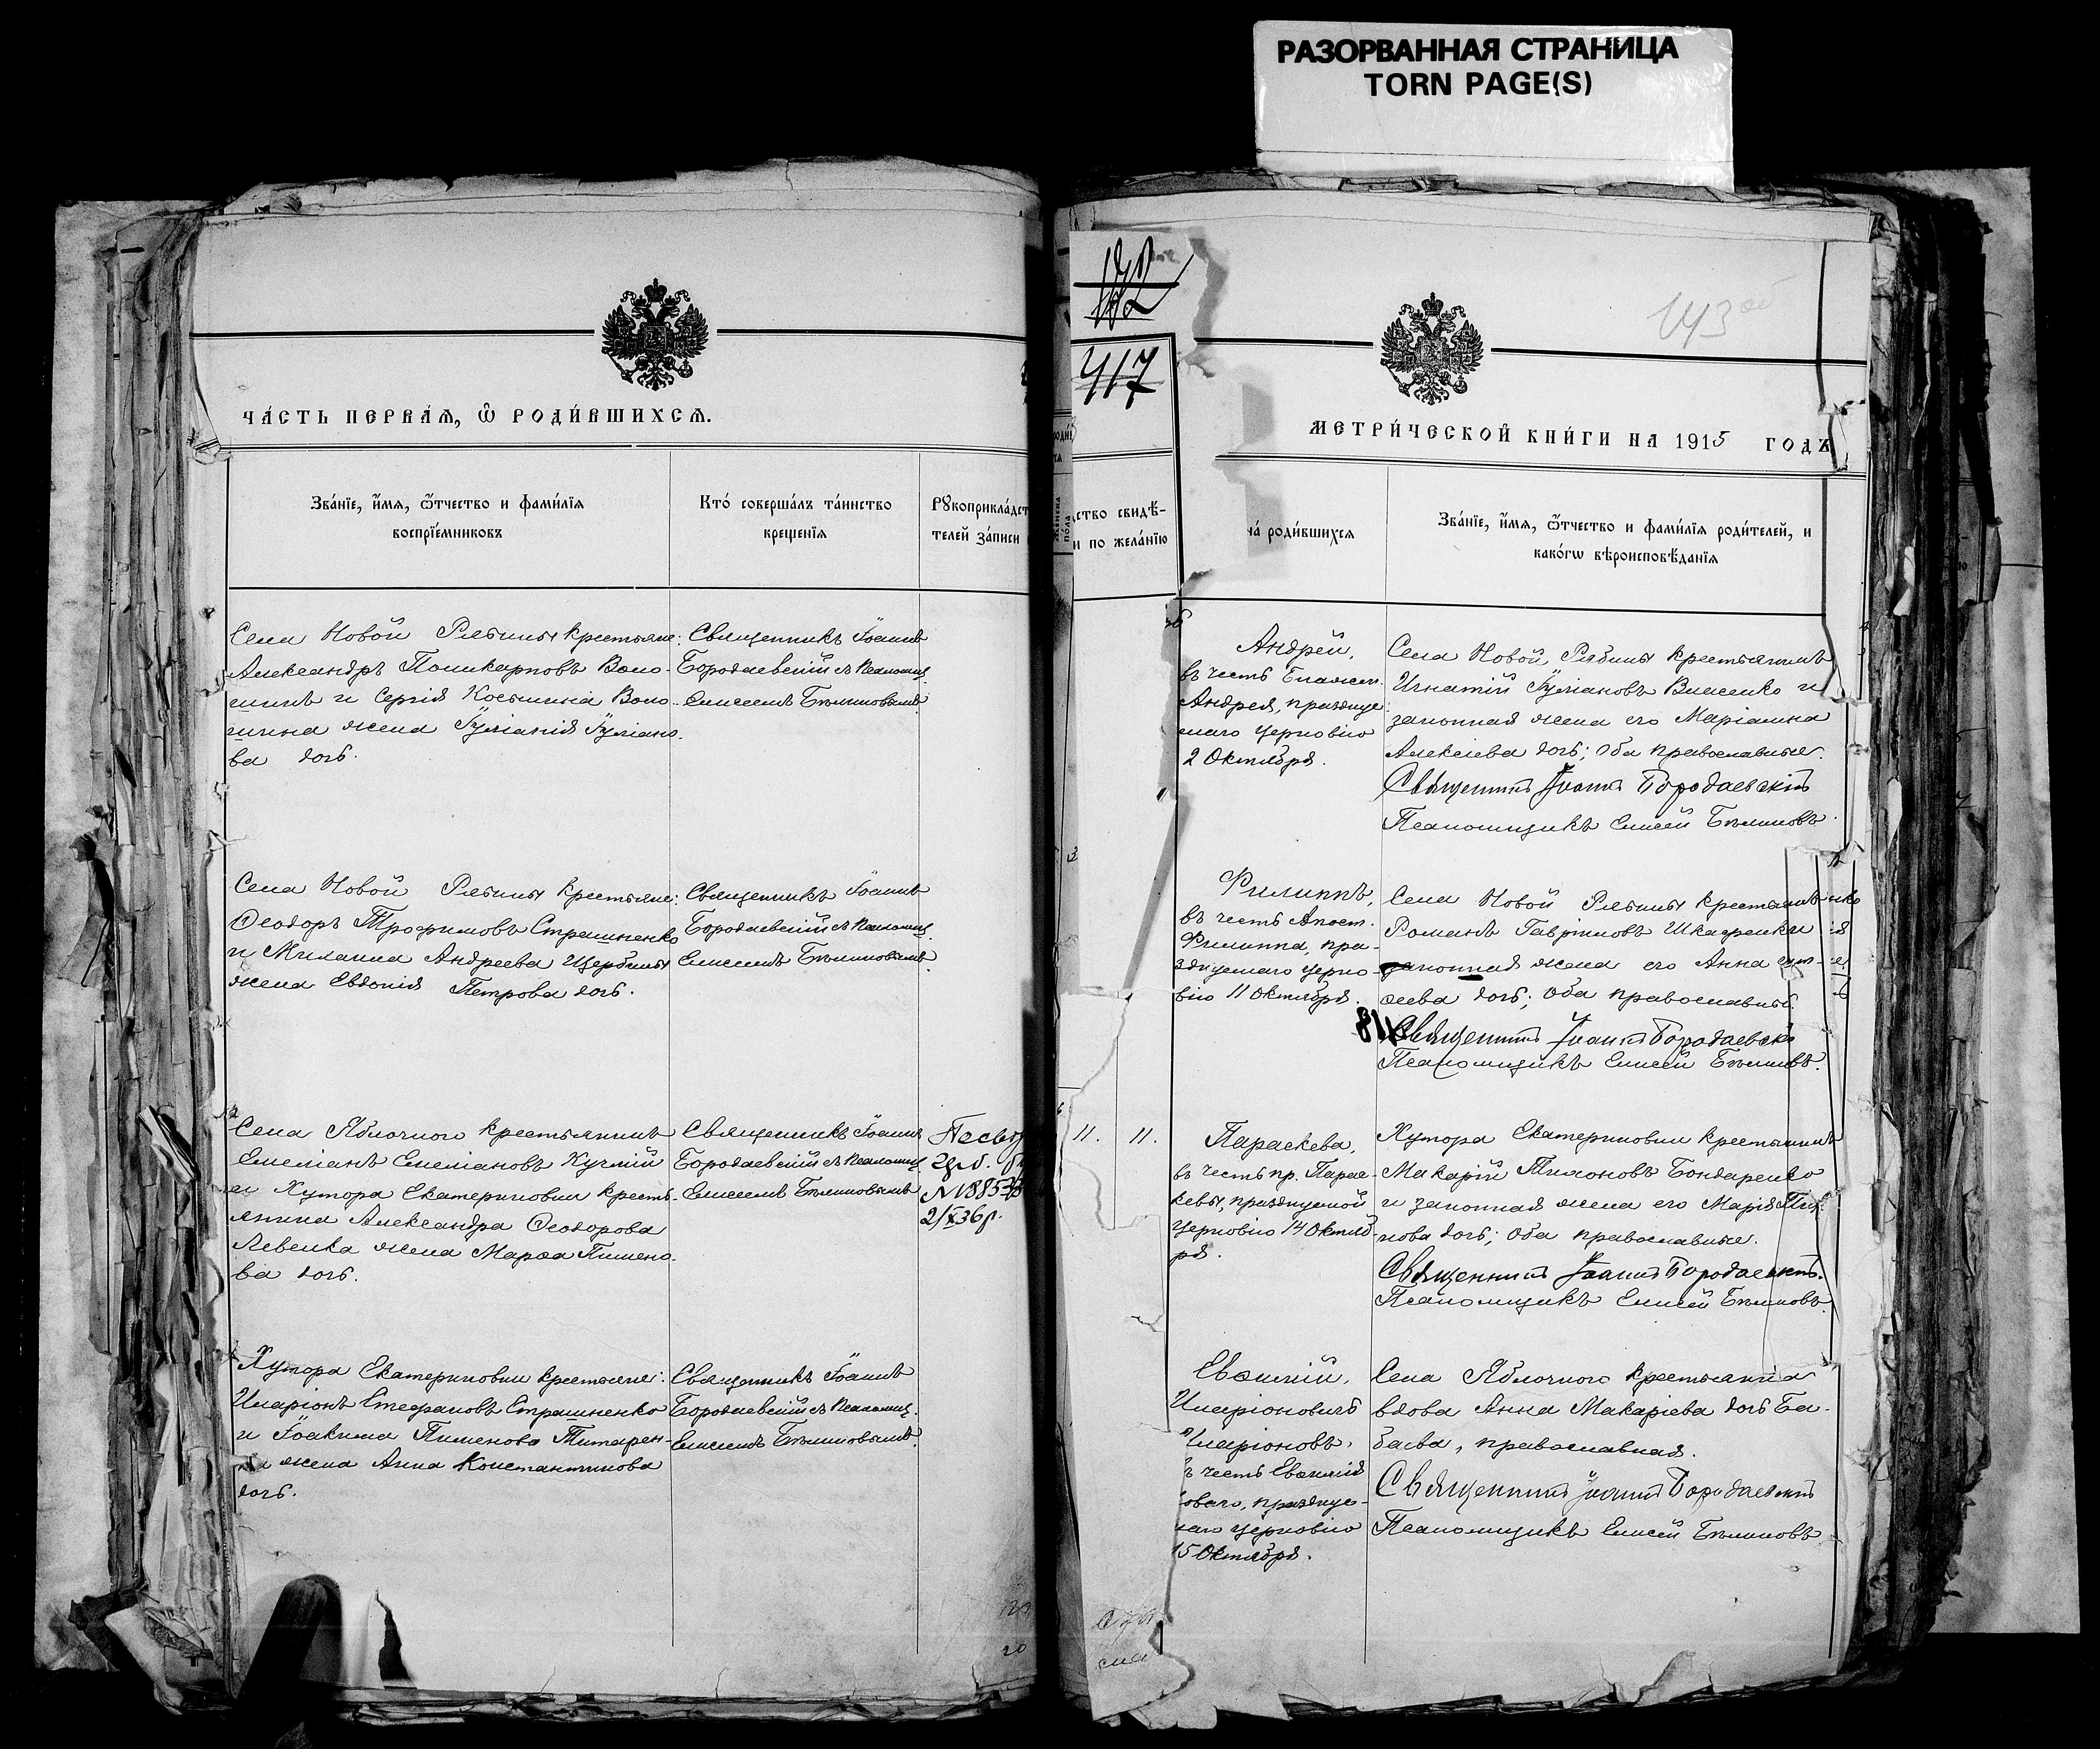 РАЗОРВАННАЯ СТРАНИЦА
TORN PAGE(S)
ЧА́СТЬ ПЕРВА́Я, Ѡ҆ РОДИ́ВШИХСѦ.
Зва́нїе, и҆́мѧ, ѻ҆́тчество и фами́лїѧ
воспрїе́мниковъ
Кто́ соверша́лъ та́инство
креще́нїѧ
Рꙋкоприкла́дст
телей за́писи
Села Новой Рябины крестьяне:
Александръ Поликарповъ Воло-
шинъ и Сергія Косьмина Воло-
шина жена Іуліанія Іуліано-
ва дочь.
Священникъ Іоаннъ
Бородаевскій съ псаломщ.
Елисеемъ Бѣлиновымъ
Села Новой Рябины крестьяне:
Ѳеодоръ Трофимовъ Страшненко
и Михаила Андреева Щербины
жена Евдокія Петрова дочь.
Священникъ Іоаннъ
Бородаевскій съ псаломщ.
Елисеемъ Бѣлиновымъ
Села Яблочнаго крестьянинъ
Емеліанъ Емеліановъ Кучмій
и Хутора Екатериновки кресть-
янина Александра Ѳеодорова
Левенка жена Марѳа Пимено-
ва дочь.
Священникъ Іоаннъ
Бородаевскій съ псаломщ.
Елисеемъ Бѣлиновымъ
2/X 36 г.
Хутора Екатериновки крестьяне:
Иларіонъ Стефановъ Страшненко
и Іоакима Пименова Титарен-
жена Анна Константинова
дочь.
Священникъ Іоаннъ
Бородаевскій съ псаломщ.
Елисеемъ Бѣлиновымъ
417
ство свидѣ-
и по жела́нїю
11. 11.
143 об
МЕТРИ́ЧЕСКОЙ КНИ́ГИ НА 1915 ГОДЪ
на́ роди́вшихсѧ
Зва́нїе, и҆́мѧ, ѻ҆́тчество и фами́лїѧ роди́телей, и
како́гѡ вѣроисповѣ́данїѧ
Андрей,
въ честь Блажен.
Андрея, празднуе-
маго церковію
2 Октября.
Села Новой Рябины крестьянинъ
Игнатій Іуліановъ Власенко и
законная жена его Маріамна
Алексіева дочь; оба православные.
Священникъ Іоаннъ Бородаевскій
Псаломщикъ Елисей Бѣлиновъ.
Филиппъ,
въ честь Апост.
Филиппа, пра-
зднуемаго церко-
вію 11 Октября.
Села Новой Рябины крестьянинъ
Романъ Гавріиловъ Шкафенки
законная жена его Анна
сеева дочь; оба православные.
418
Священникъ Іоаннъ Бородаевскій
Псаломщикъ Елисей Бѣлиновъ.
Параскева,
въ честь пр. Парас-
кевы, празднуемой
церковію 14 Октяб-
ря.
Хутора Екатериновки крестьянинъ
Макарій Тихоновъ Бондаренко
и законная жена его Марія
нова дочь; оба православные.
Священникъ Іоаннъ Бородаевскій.
Псаломщикъ Елисей Бѣлиновъ.
Евѳимій,
Иларіоновичъ
Иларіоновъ,
ъ честь Евѳимія
оваго, празднуе-
маго церковію
15 Октября.
Села Яблочнаго крестьянка
вдова Анна Макаріева дочь Ба-
баева, православная.
Священникъ Іоаннъ Бородаевскій
Псаломщикъ Елисей Бѣлиновъ